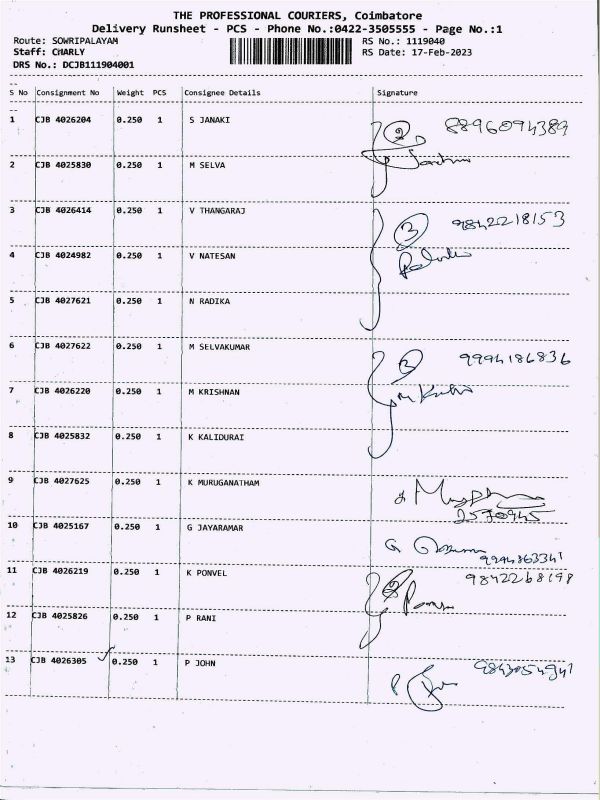 THE PROFESSIONAL COURIERS, Coimbatore
Delivery Runsheet - PCS - Phone No.:0422-3505555 - Page No.:1
Route: SOWRIPALAYAM
Staff: CHARLY
DRS No.: DCJB111904001
RS No.: 1119040
RS Date: 17-Feb-2023
S No Consignment No Weight PCS Consignee Details Signature
1 CJB 4026204 0.250 1 S JANAKI 2 8896094389
2 CJB 4025830 0.250 1 M SELVA
3 CJB 4026414 0.250 1 V THANGARAJ 3 9842218153
4 CJB 4024982 0.250 1 V NATESAN
5 CJB 4027621 0.250 1 N RADIKA
6 CJB 4027622 0.250 1 M SELVAKUMAR 9994186836
7 CJB 4026220 0.250 1 M KRISHNAN
8 CJB 4025832 0.250 1 K KALIDURAI
9 CJB 4027625 0.250 1 K MURUGANATHAM
2570945
10 CJB 4025167 0.250 1 G JAYARAMAR G
9994863341
11 CJB 4026219 0.250 1 K PONVEL 9842268198
12 CJB 4025826 0.250 1 P RANI
13 CJB 4026305 0.250 1 P JOHN P 9843054941